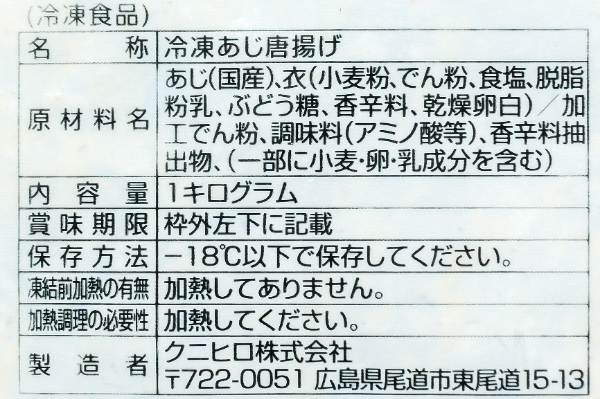 (冷凍食品)
名称 冷凍あじ唐揚げ
原材料名 あじ(国産)、衣(小麦粉、でん粉、食塩、脱脂
粉乳、ぶどう糖、香辛料、乾燥卵白)／加
工でん粉、調味料(アミノ酸等)、香辛料抽
出物、(一部に小麦・卵・乳成分を含む)
内容量 1キログラム
賞味期限 枠外左下に記載
保存方法 −18℃以下で保存してください。
凍結前加熱の有無 加熱してありません。
加熱調理の必要性 加熱してください。
製造者 クニヒロ株式会社
〒722-0051 広島県尾道市東尾道15-13